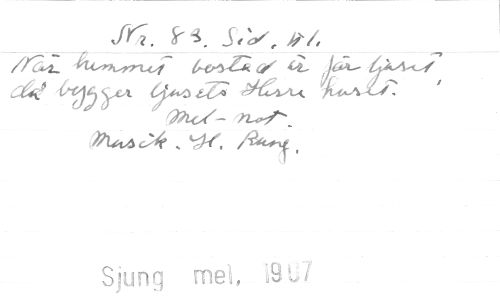 Nr. 83. Sid.
När hemmet bostad är för ljuset
då bygger ljusets Herre huset.
Mel-not.
Musik. H. Rung.
Sjung mel, 1907